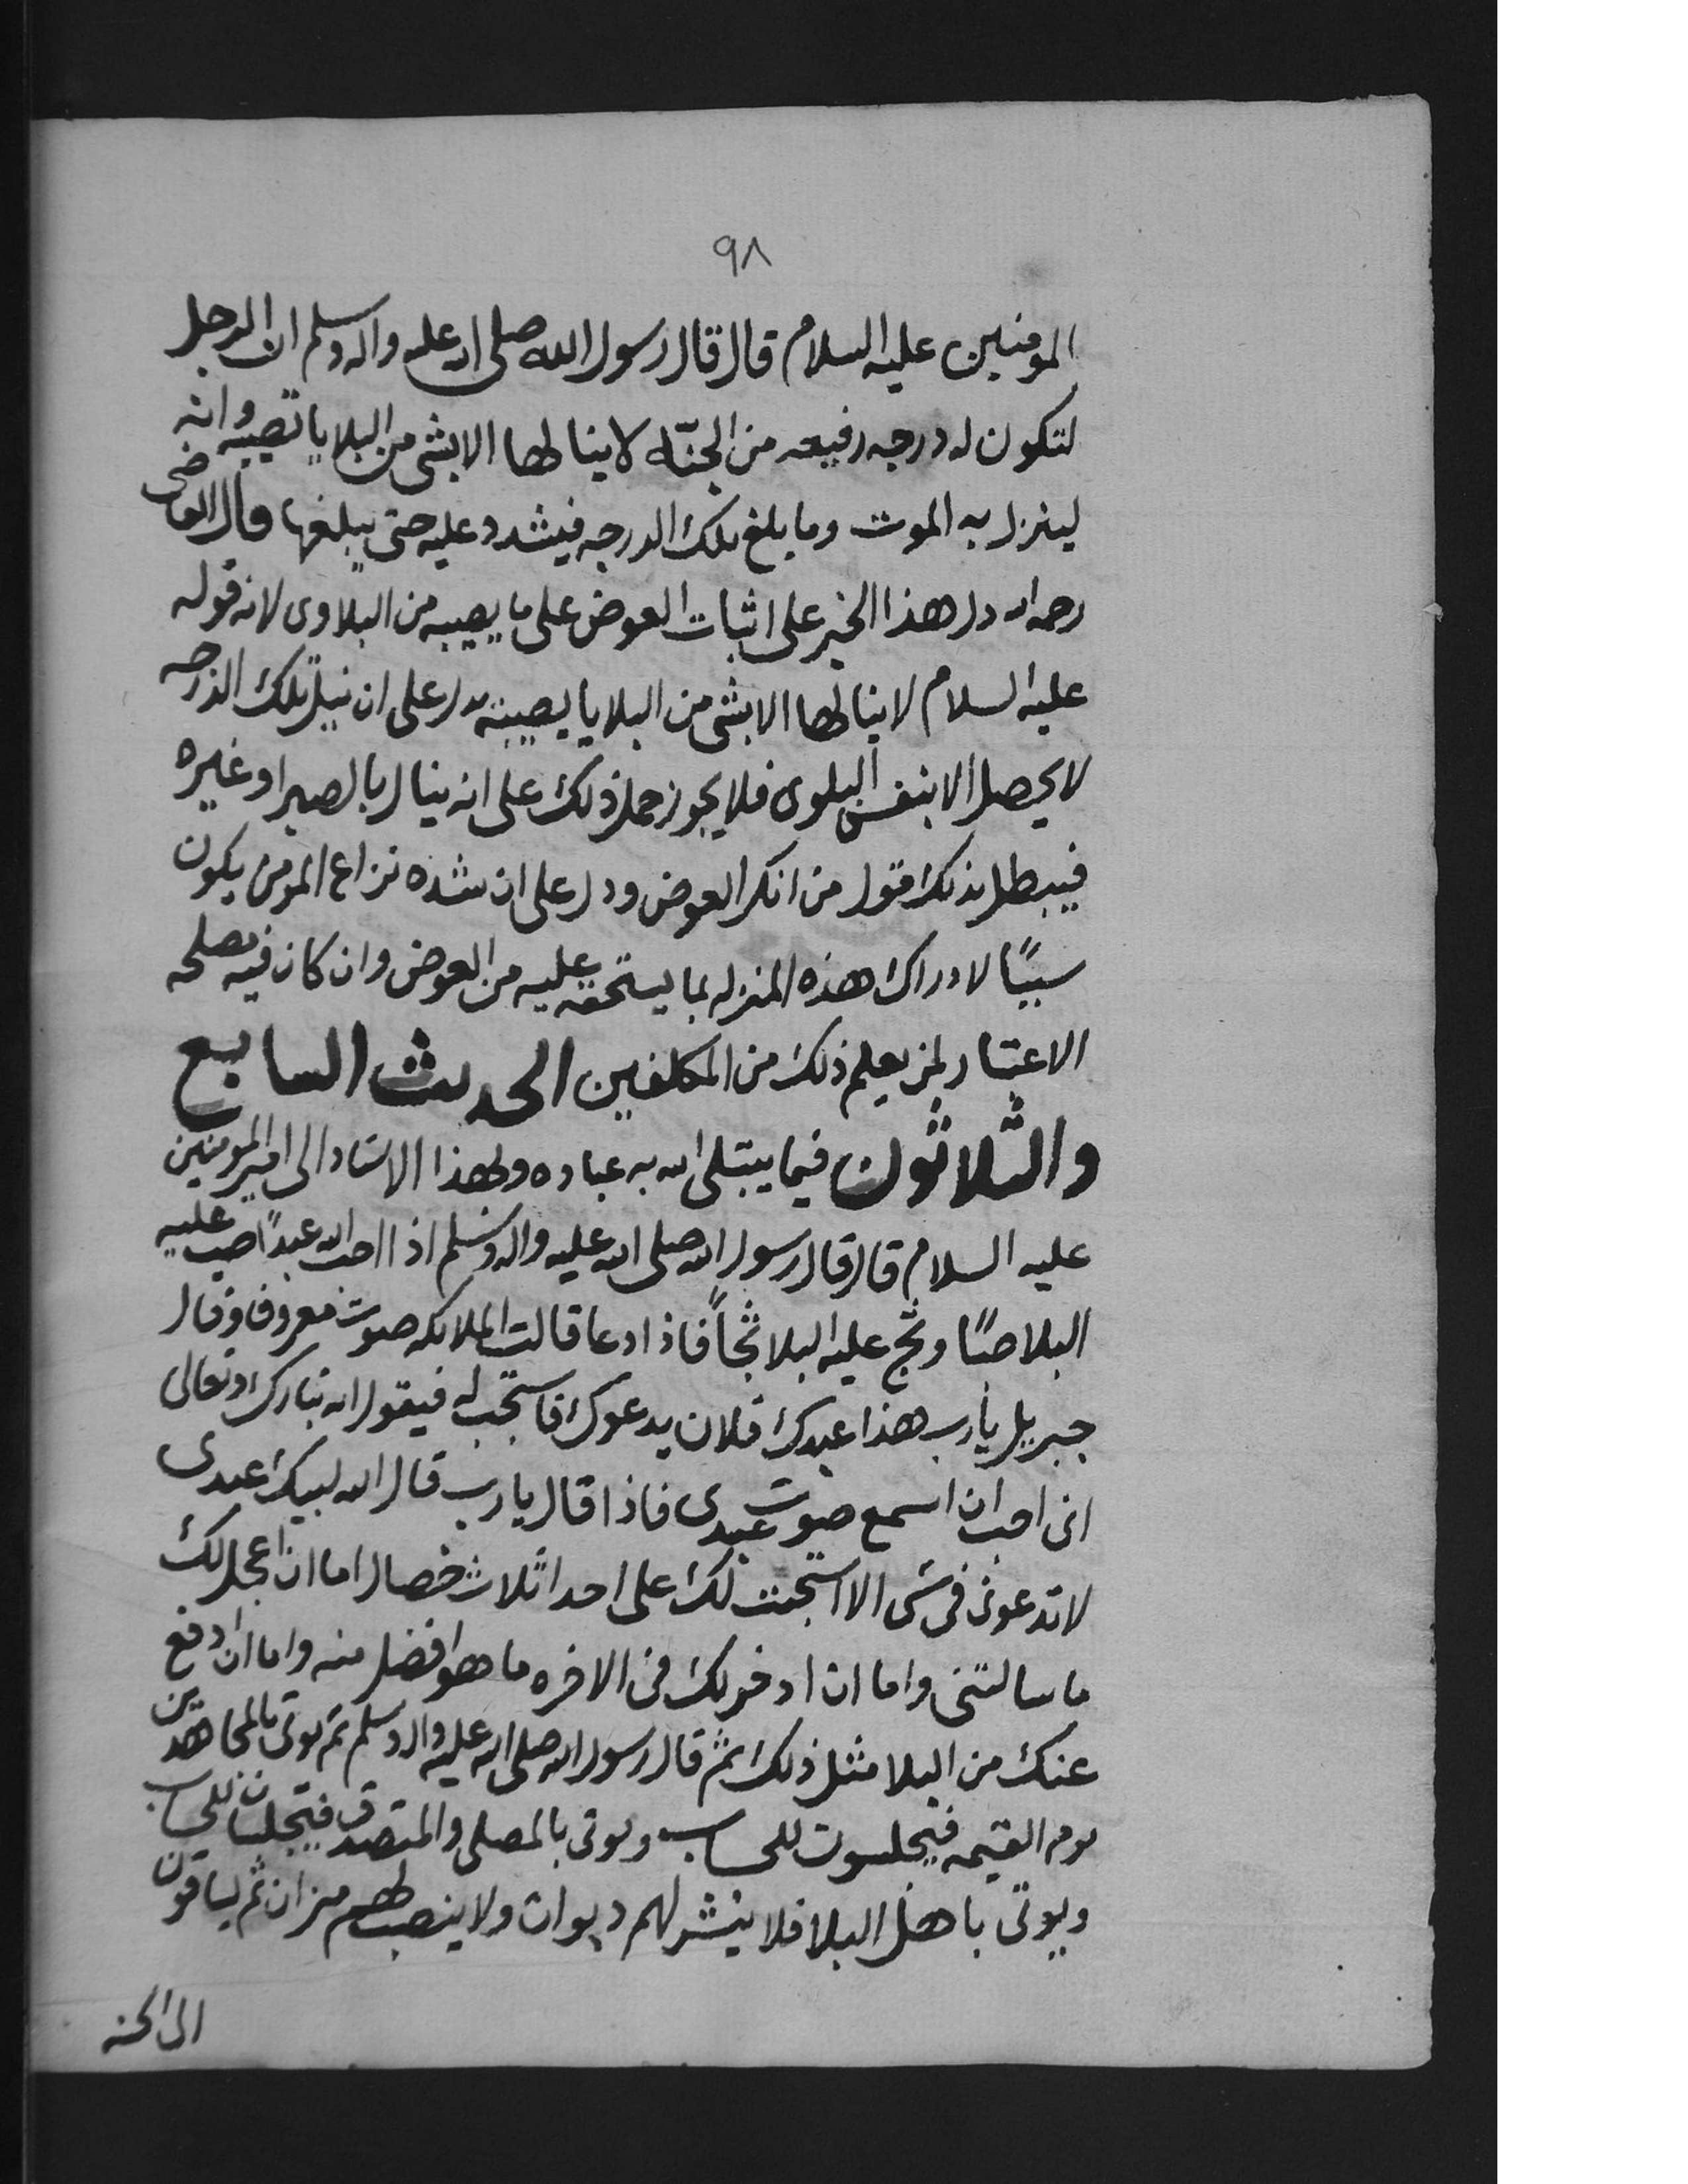 ٩٨
المومنين عليه السلام قال قال رسول الله صلى الله عليه واله وسلم ان الرجل
لتكون له درجه رفيعه من الجنّه لا ينالها الا بشى من البلايا تصيبه وانه
لينزل به الموت وما بلغ تلك الدرجه فيشدد عليه حتى يبلغها قال القاضى
رحمه الله دل هذا الخبر على اثبات العوض على ما يصيبه من البلاوى لانه قوله
عليه السلام لا ينالها الا بشى من البلايا يصيبه يدل على ان نيل تلك الدرجه
لا يحصل الا بنفس البلوى فلا يجوز حمل ذلك على انه ينال بالصبر او غيره
فيبطل بذلك قول من انكر العوض ودل على ان شده نزاع المومن يكون
سببًا لادراك هذه المنزله بما يستحقه عليه من العوض وان كان فيه مصلحه
الاعتبار لمن يعلم ذلك من المكلفين الحديث السابع
والثلاثون فيما يبتلى الله به عباده وبهذا الاسناد الى امير المومنين
عليه السلام قال قال رسول الله صلى الله عليه واله وسلم اذا احب الله عبدًا صب عليه
البلا صبًا وثج عليه البلا ثجاً فاذا دعا قالت الملائكه صوت معروف وقال
جبريل يا رب هذا عبدك فلان يدعوك فاستجب له فيقول الله تبارك وتعالى
انى احب ان اسمع صوت عبدى فاذا قال يا رب قال الله لبيك عبدى
لا تدعونى فى شى الا استجبت لك على احد ثلاث خصال اما ان اعجل لك
ما سالتنى واما ان ادخر لك فى الاخره ما هو افضل منه واما ان ادفع
عنك من البلا مثل ذلك ثم قال رسول الله صلى الله عليه واله وسلم ثم يوتى بالمجاهدين
يوم القيمه فيجلسون للحساب ويوتى بالمصلى والمتصدق فيجلسان للحساب
ويوتى باهل البلا فلا ينشر لهم ديوان ولا ينصب لهم ميزان ثم يساقون
الى الجنه